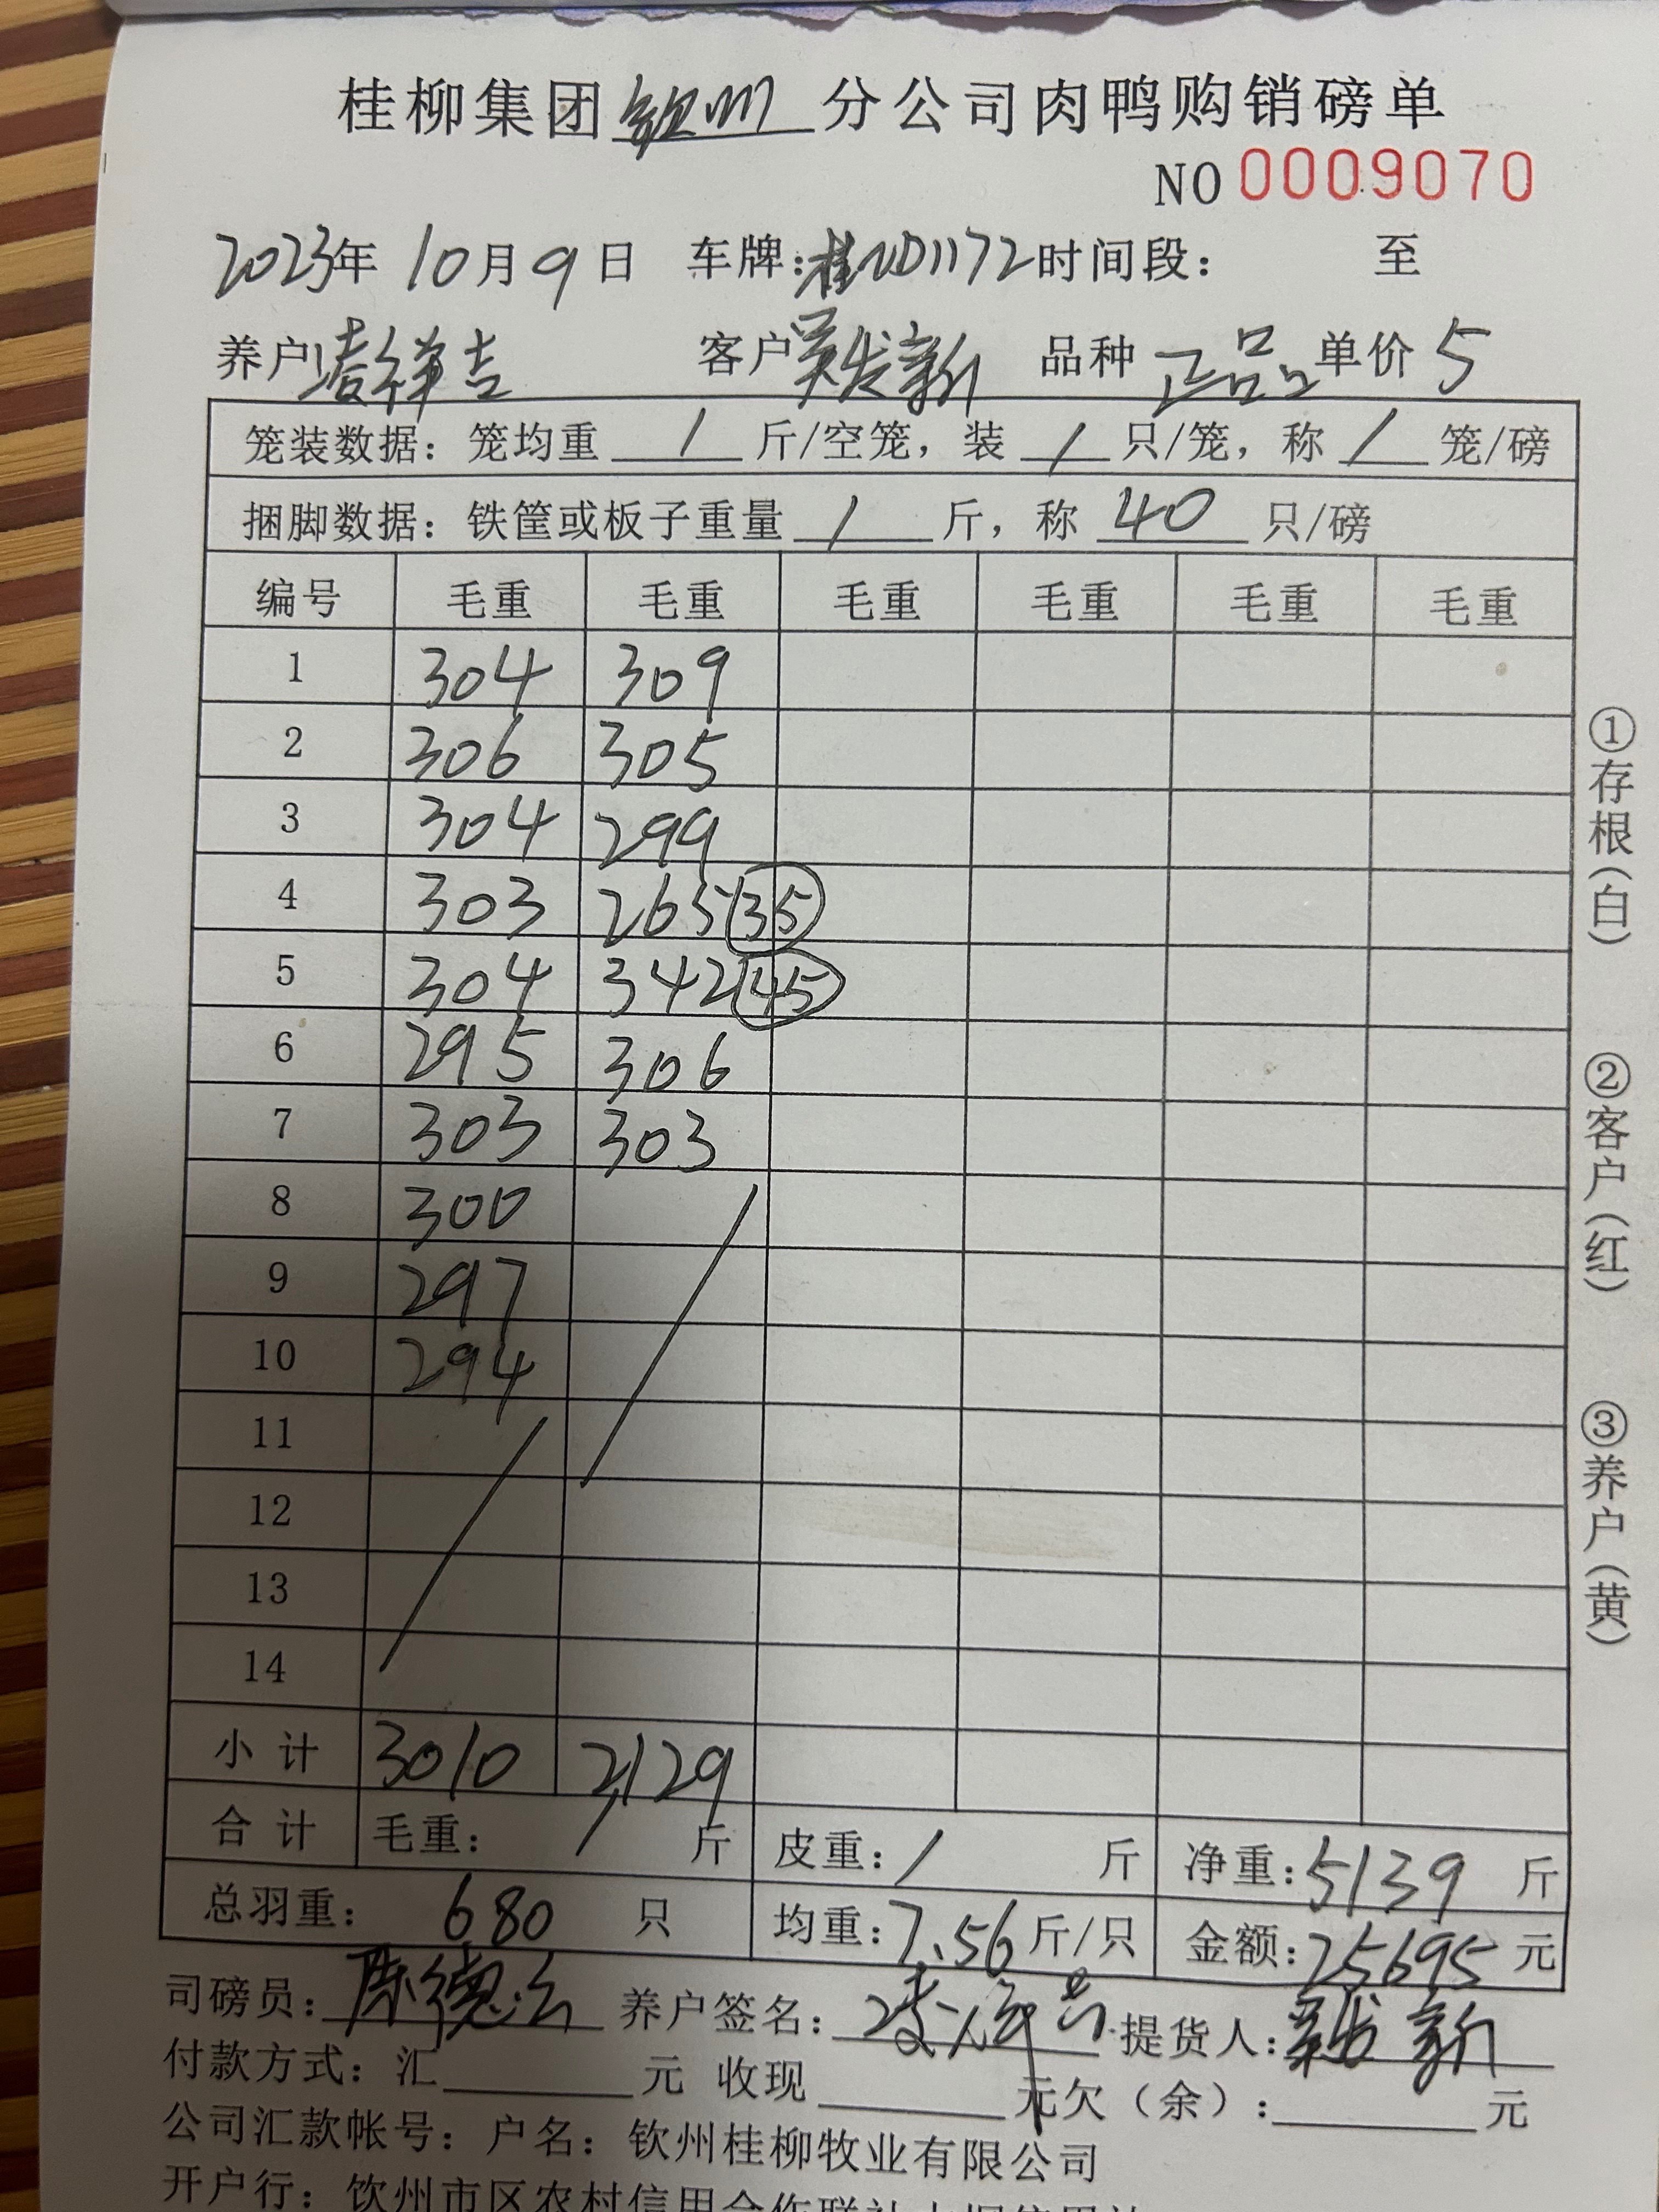 桂柳集团钦州分公司肉鸭购销磅单
NO 0009070
2023年 10月 9日 车牌:桂ND1172 时间段: 至
养户 凌祥吉 客户 吴发新 品种 正品 单价 5
笼装数据:笼均重 / 斤/空笼,装 / 只/笼,称 / 笼/磅
捆脚数据:铁筐或板子重量 / 斤,称 40 只/磅
编号 毛重 毛重 毛重 毛重 毛重 毛重
1 304 309
2 306 305
3 304 299
4 303 265 35
5 304 342 45
6 295 306
7 303 303
8 300
9 297
10 294
11
12
13
14
小计 3010 2129
合计 毛重: / 斤 皮重: / 斤 净重:5139 斤
总羽重: 680 只 均重:7.56 斤/只 金额:25695 元
司磅员:陈德 养户签名:凌祥吉 提货人:吴发新
付款方式:汇 元 收现 元欠(余): 元
公司汇款帐号:户名:钦州桂柳牧业有限公司
开户行:钦州市区农村信用合作联社
①存根(白)
②客户(红)
③养户(黄)